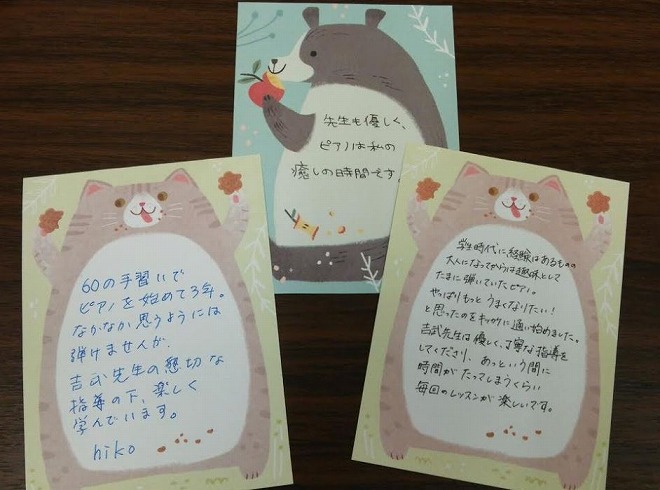 先生も優しく、
ピアノは私の
癒しの時間です。
60の手習いで
ピアノを始めて3年。
なかなか思うようには
弾けませんが、
吉武先生の懇切な
指導の下、楽しく
学んでいます。
hiko
学生時代に経験はあるものの
大人になってからは趣味として
たまに弾いていたピアノ。
やっぱりもっとうまくなりたい!
と思ったのをキッカケに通い始めました。
吉武先生は優しく、丁寧な指導を
してくださり、あっという間に
時間がたってしまうくらい
毎回のレッスンが楽しいです。